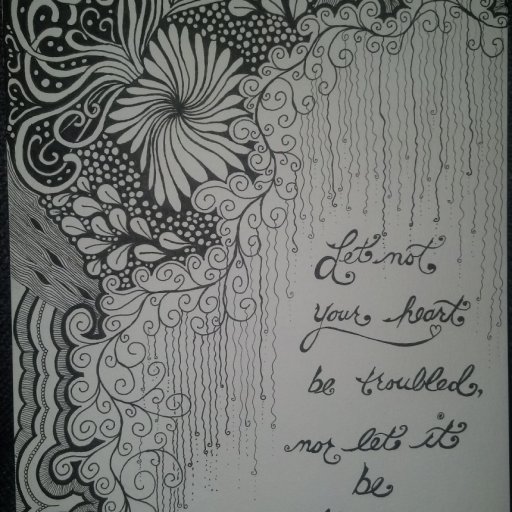 Let not
your heart
be troubled,
nor let it
be